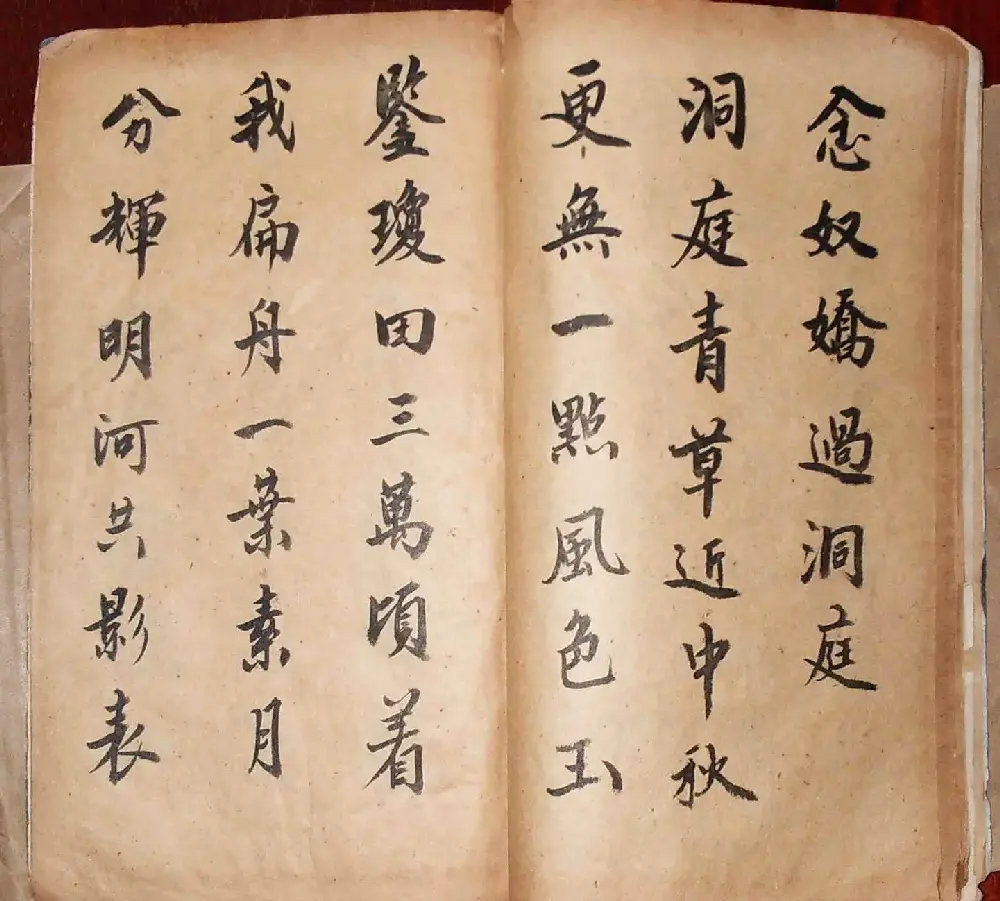 念奴嬌過洞庭
洞庭青草近中秋
更無一點風色玉
鑒瓊田三萬頃着
我扁舟一葉素月
分輝明河共影表